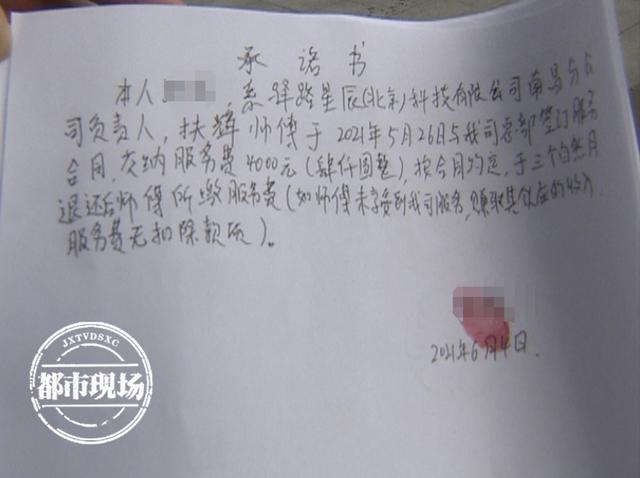 承诺书
本人 系驿路星辰(北京)科技有限公司南昌分公
司负责人,扶辉师傅于2021年5月26日与我司总部签订服务
合同,交纳服务费4000元(肆仟圆整),按合同约定,于三个自然月
退还后师傅所缴服务费(如师傅未享受到我司服务,赚取其供应的收入
服务费无扣除款项)。
2021年6月4日.
JXTVDSXC
都市现场